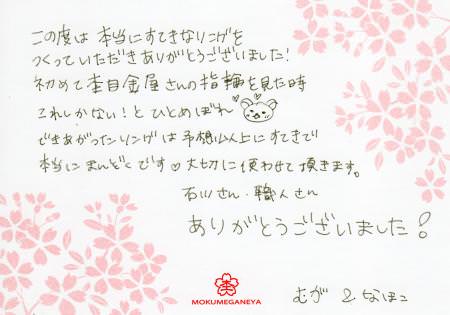 この度は本当にすてきなリングを
つくっていただきありがとうございました!
初めて杢目金屋さんの指輪を見た時
これしかない!とひとめぼれ
できあがったリングは予想以上にすてきで
本当にまんぞくです♡大切に使わせて頂きます。
石川さん・職人さん
ありがとうございました!
MOKUMEGANEYA
むが & なほこ